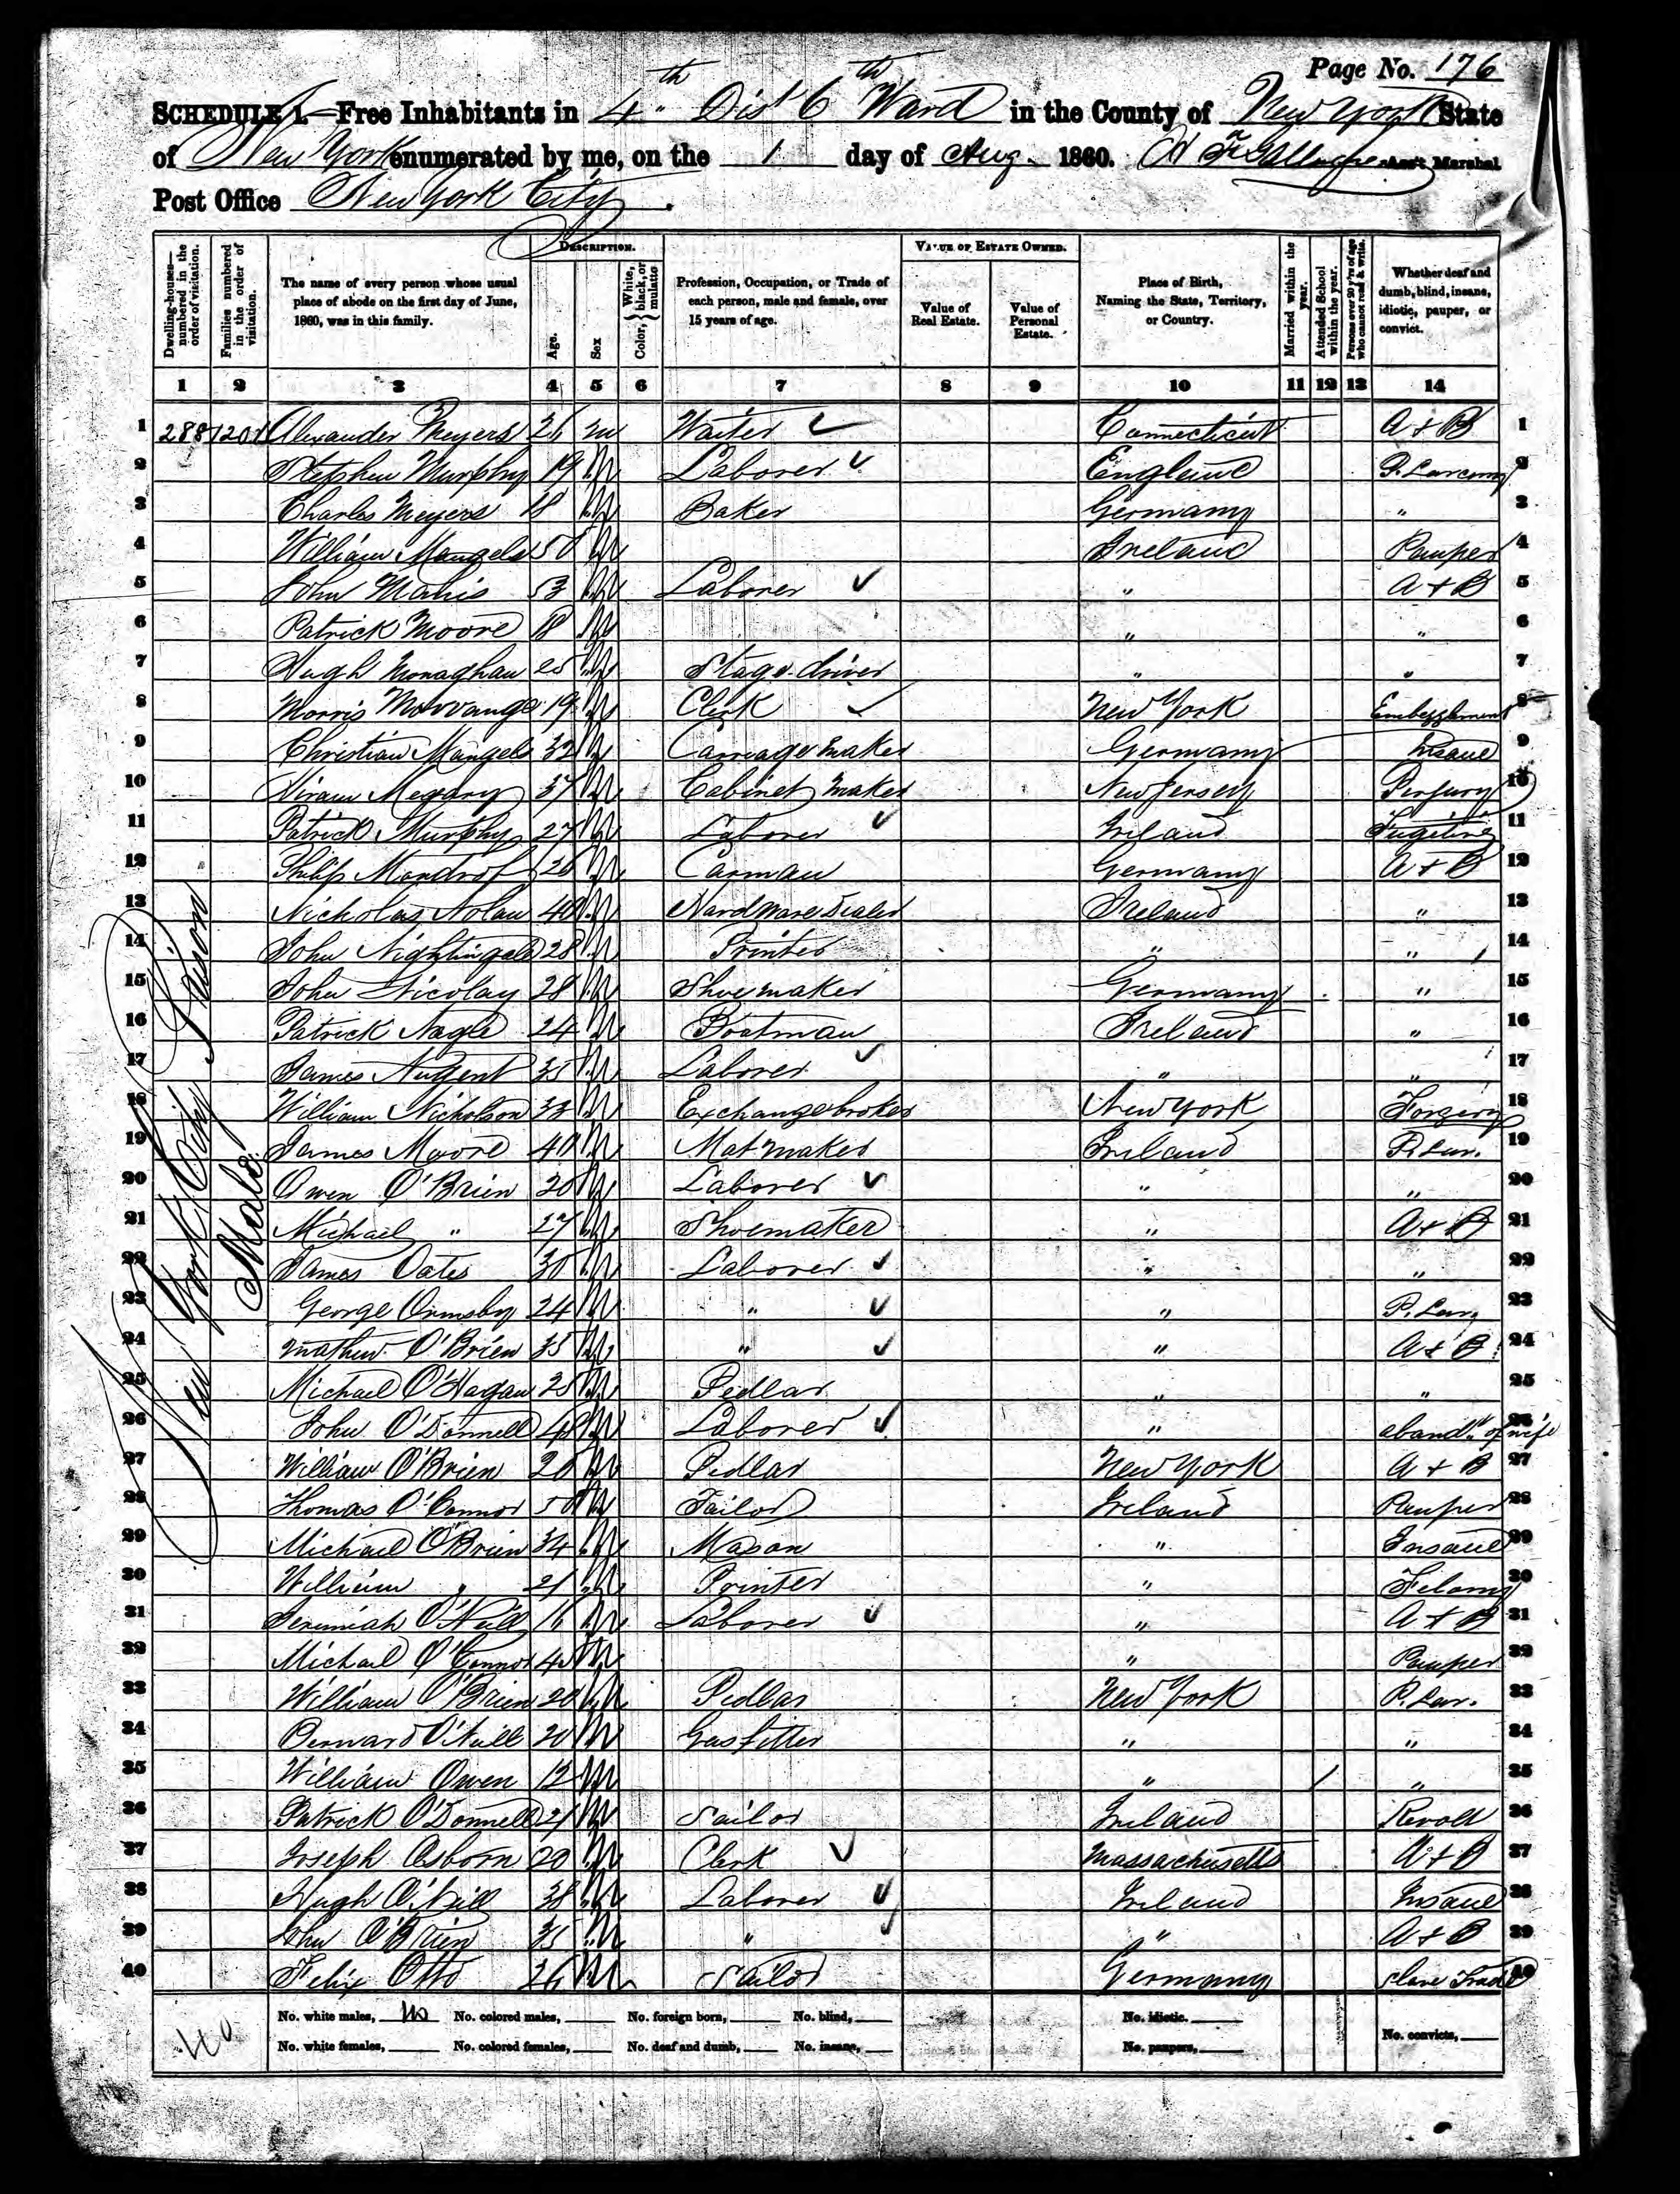 Page No. 176
SCHEDULE 1.—Free Inhabitants in 4th Dist 6th Ward in the County of New York State
of New York enumerated by me, on the 1 day of Aug. 1860. Ass't Marshal
Post Office New York City.
Dwelling-houses—numbered in the order of visitation.
Families numbered in the order of visitation.
The name of every person whose usual place of abode on the first day of June, 1860, was in this family.
DESCRIPTION.
Age.
Sex
Color, { White, black, or mulatto
Profession, Occupation, or Trade of each person, male and female, over 15 years of age.
VALUE OF ESTATE OWNED.
Value of Real Estate.
Value of Personal Estate.
Place of Birth, Naming the State, Territory, or Country.
Married within the year.
Attended School within the year.
Persons over 20 y'rs of age who cannot read & write.
Whether deaf and dumb, blind, insane, idiotic, pauper, or convict.
1 2 3 4 5 6 7 8 9 10 11 12 13 14
New York City Prison
Male
1 288 1201 Alexander Meyers 26 m Waiter Connecticut A + B 1
2 Stephen Murphy 19 M Laborer England P. Larceny 2
3 Charles Meyers 18 M Baker Germany " 3
4 William Mangels 50 M Ireland Pauper 4
5 John 53 M Laborer " A + B 5
6 Patrick Moore 18 M " " 6
7 Hugh Monaghan 25 M Stage driver " " 7
8 Morris 19 M Clerk New York Embezzlement 8
9 Christian Mangels 32 M Carriage maker Germany Insane 9
10 Hiram Megary 37 M Cabinet maker New Jersey Perjury 10
11 Patrick Murphy 27 M Laborer Ireland Fugitive 11
12 Philip 26 M Carman Germany A + B 12
13 Nicholas Nolan 40 M Hardware Dealer Ireland " 13
14 John Nightingale 28 M Printer " " 14
15 John Nicolay 28 M Shoemaker Germany " 15
16 Patrick Nagle 24 M Boatman Ireland " 16
17 James Nugent 35 M Laborer " " 17
18 William Nicholson 33 M Exchange broker New York Forgery 18
19 James Moore 40 M Mat maker Ireland P. Lar. 19
20 Owen O'Brien 20 M Laborer " " 20
21 Michael " 27 M Shoemaker " A + B 21
22 James Oates 30 M Laborer " " 22
23 George Ormsby 24 M " " P. Lar. 23
24 Mathew O'Brien 35 M " " A + B 24
25 Michael O'Hagan 25 M Pedlar " " 25
26 John O'Donnell 48 M Laborer " aband" of wife 26
27 William O'Brien 20 M Pedlar New York A + B 27
28 Thomas O'Connor 50 M Tailor Ireland Pauper 28
29 Michael O'Brien 34 M Mason " Insane 29
30 William " 21 M " Felony 30
31 Jeremiah O'Neill 16 M Laborer " A + B 31
32 Michael O'Connor 45 M " Pauper 32
33 William O'Brien 20 M Pedlar New York P. Lar. 33
34 Bernard O'Neill 20 M Gasfitter " " 34
35 William Owen 12 M " / " 35
36 Patrick O'Donnell 21 M Sailor Ireland Revolt 36
37 Joseph Osborn 20 M Clerk Massachusetts A + B 37
38 Hugh O'Neill 38 M Laborer Ireland Insane 38
39 John O'Brien 35 M " " A + B 39
40 Felix Otto 26 M Sailor Germany Slave Trade 40
40
No. white males, 40 No. colored males, No. foreign born, No. blind, No. idiotic.
No. white females, No. colored females, No. deaf and dumb, No. insane, No. paupers, No. convicts,